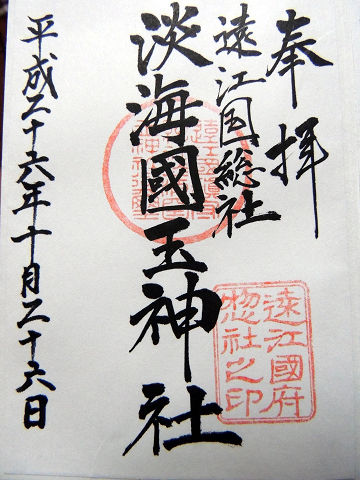 奉拝
遠江国総社
淡海國玉神社
平成二十六年十月二十六日
遠江國府
惣社之印